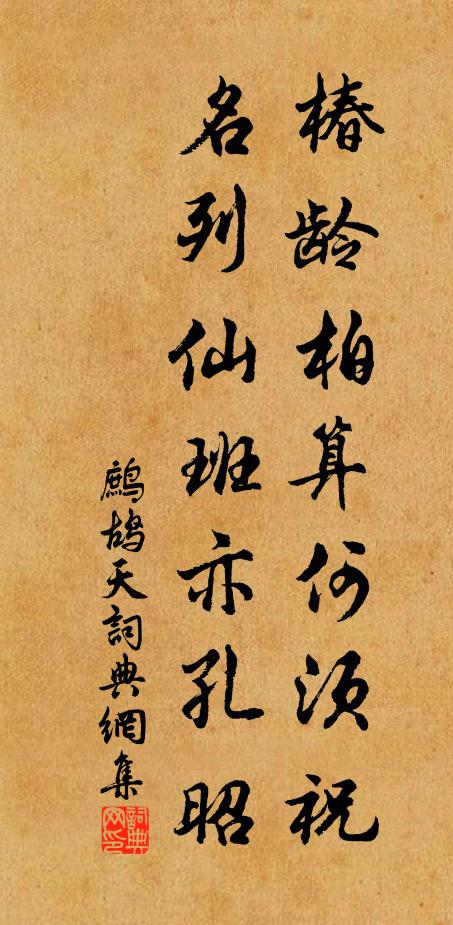 椿龄柏算何须祝
名列仙班亦孔昭
鷓鴣天詞典網集
詞典網印